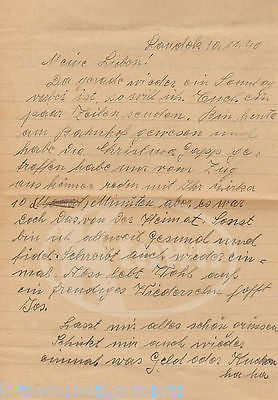 Randok 10.11.40
Meine Lieben!
Da gerade wieder ein Sonntag
vorbei ist, so will ich Euch ein
paar Zeilen senden. Bin heute
am Bahnhof gewesen und
habe die Christina Gapp ge-
troffen habe nur vom Zug
aus können reden mit Ihr zirka
10 Minuten aber es war
doch Das von der Heimat. Sonst
bin ich alleweil Gesund und
fidel. Schreibt auch wieder ein-
mal. Also lebt Wohl auf
ein freudiges Wiedersehn hofft
Jos.
Lasst mir alles schön grüssen
Schickt mir auch wieder
einmal was Geld oder Kuchen
ha ha